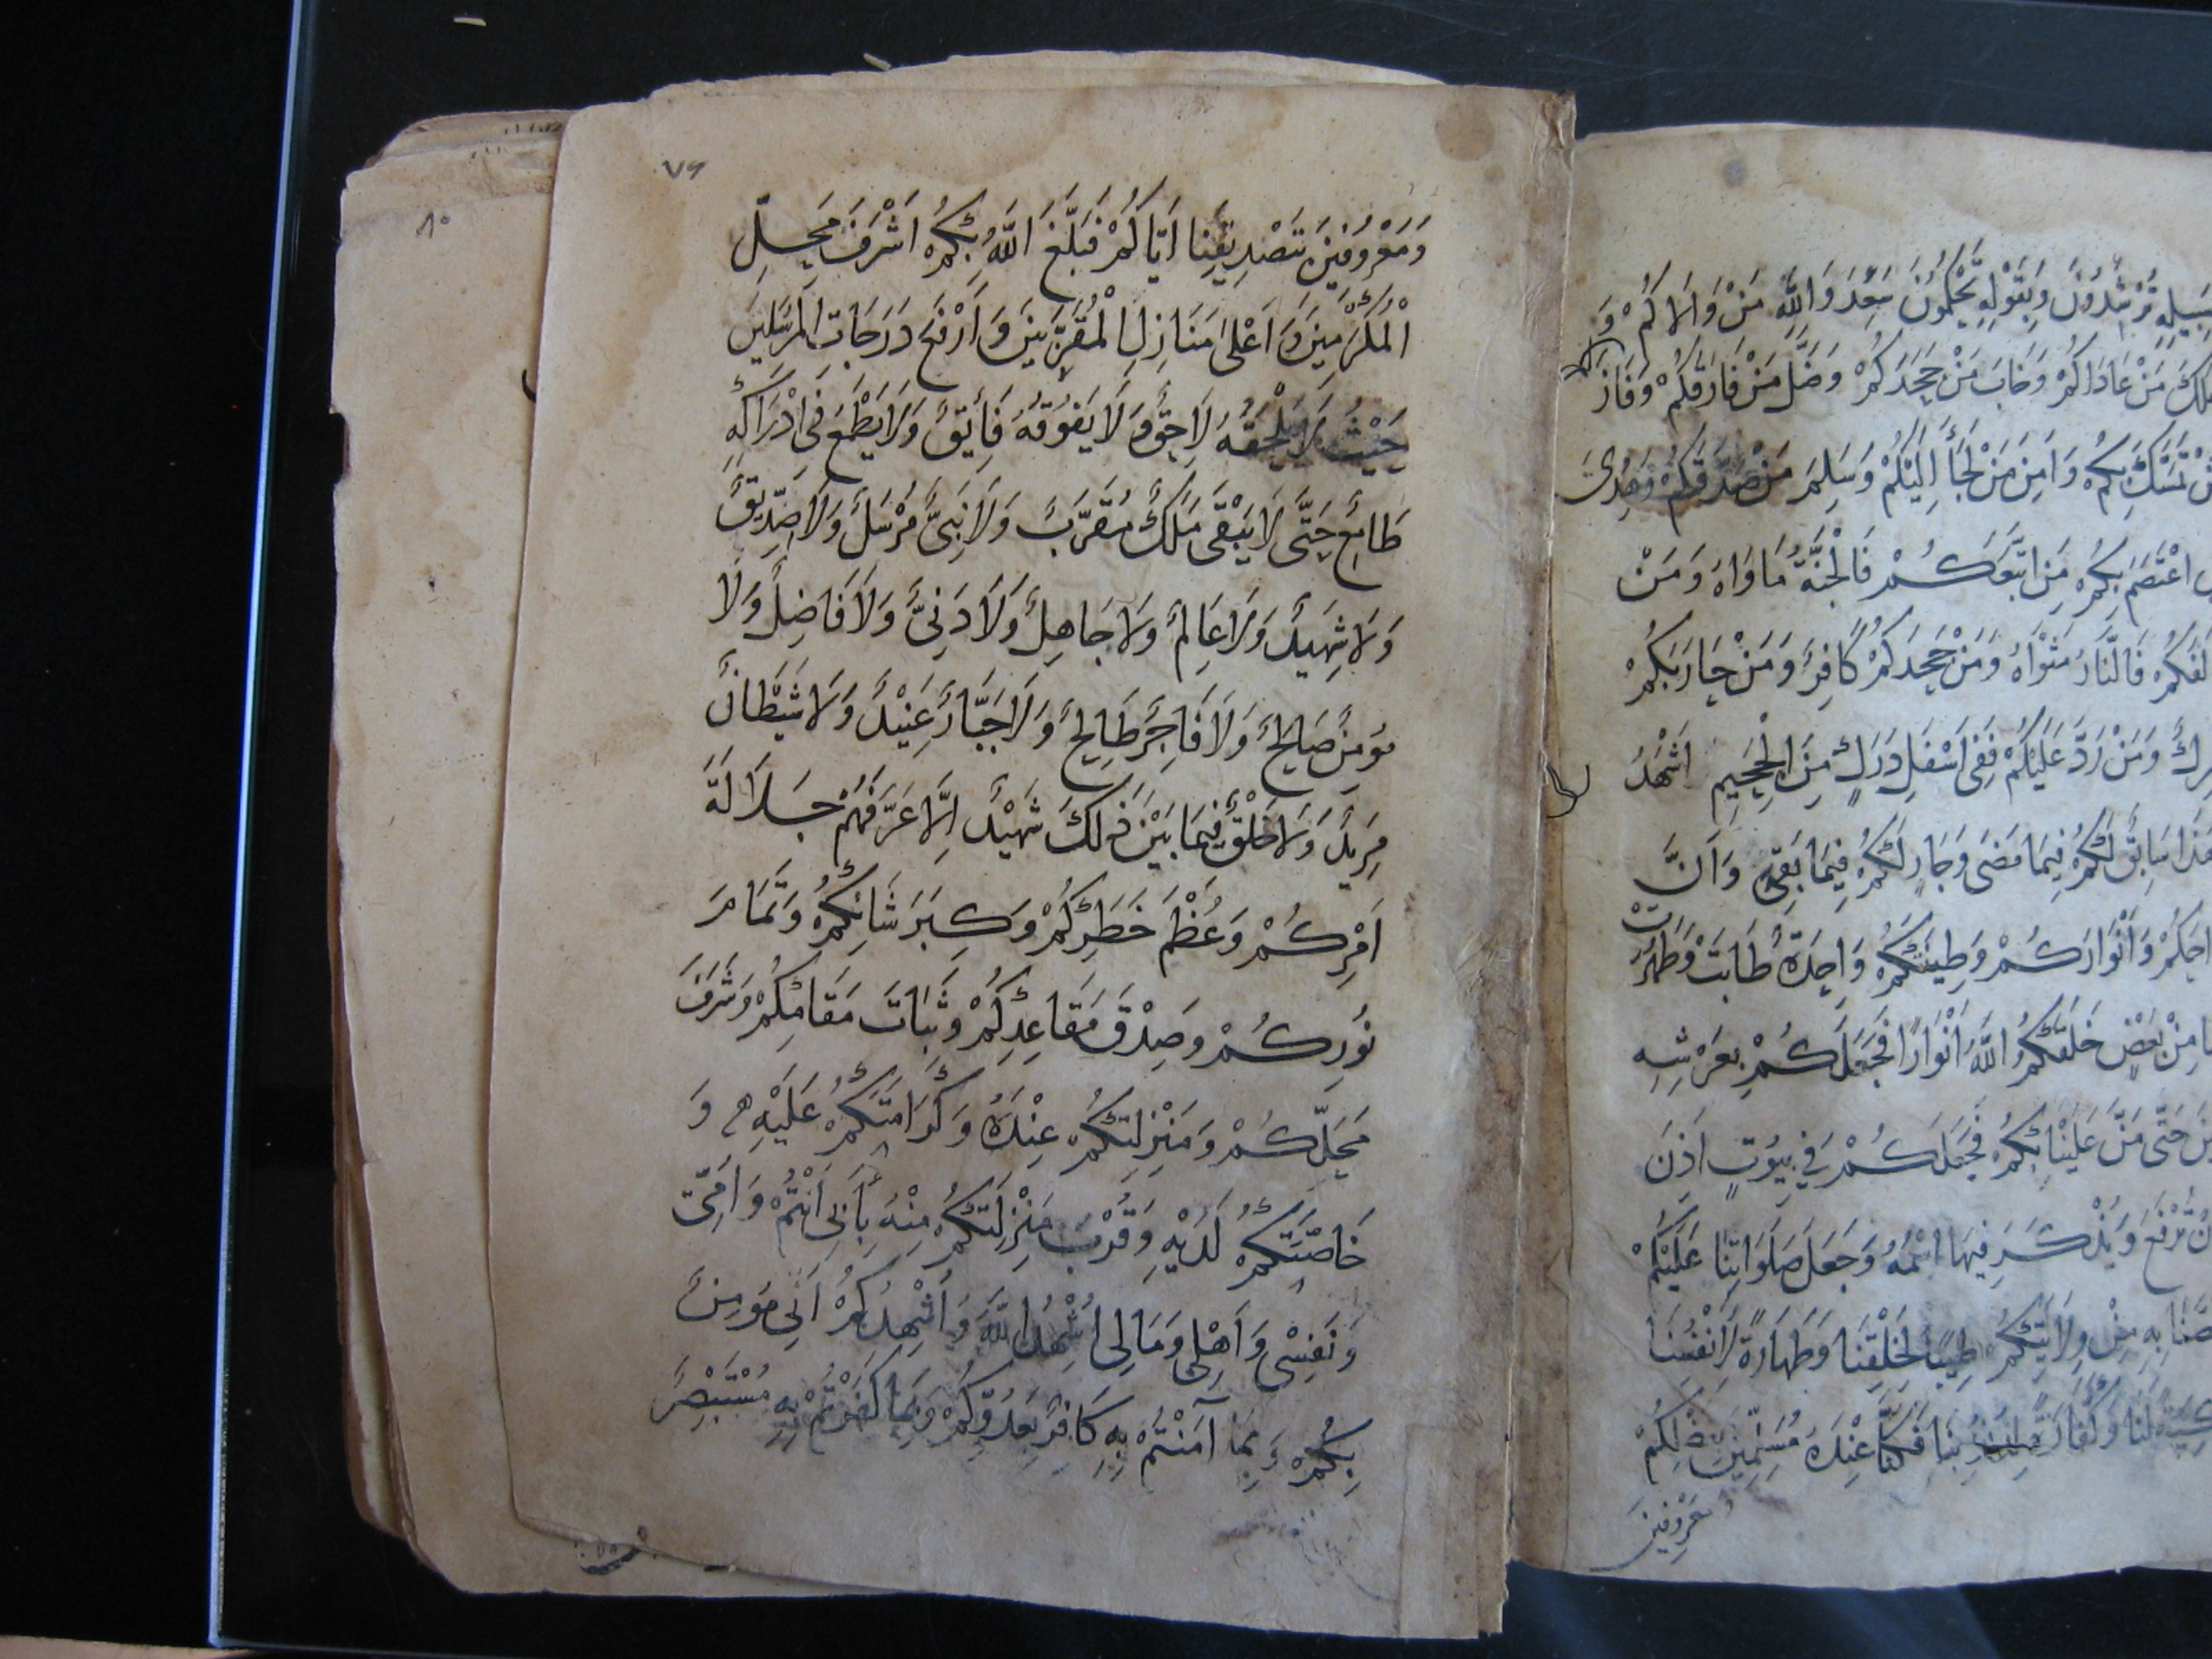 سَبِيلِهِ تُرْشِدُونَ وَبِقَوْلِهِ تَحْكُمُونَ سَعِدَ وَاللهِ مَنْ وَالَاكُمْ وَ
هَلَكَ مَنْ عَادَاكُمْ وَخَابَ مَنْ جَحَدَكُمْ وَضَلَّ مَنْ فَارَقَكُمْ وَفَازَ
مَنْ تَمَسَّكَ بِكُمْ وَامِنَ مَنْ لَجَأَ اِلَيْكُمْ وَسَلِمَ مَنْ صَدَّقَكُمْ وَهُدِىَ
اعْتَصَمَ بِكُمْ مَنِ اتَّبَعَكُمْ فَالْجَنَّةُ مَاوَاهُ وَمَنْ
لَفَكُمْ فَالنَّارُ مَثْوَاهُ وَمَنْ جَحَدَكُمْ كَافِرٌ وَمَنْ حَارَبَكُمْ
رِكٌ وَمَنْ رَدَّ عَلَيْكُمْ فَفِى اَسْفَلِ دَرَكٍ مِنَ الْجَحِيمِ اَشْهَدُ
هَذَا سَابِقٌ لَكُمْ فِيمَا مَضَى وَجَارٍ لَكُمْ فِيمَا بَقِىَ وَاَنَّ
احَكُمْ وَاَنْوَارَكُمْ وَطِينَتَكُمْ وَاحِدَةٌ طَابَتْ وَطَهُرَتْ
مِنْ بَعْضٍ خَلَقَكُمُ اللهُ اَنْوَارًا فَجَعَلَكُمْ بِعَرْشِهِ
حَتَّى مَنَّ عَلَيْنَا بِكُمْ فَجَعَلَكُمْ فِي بُيُوتٍ اَذِنَ
تُرْفَعَ وَيُذْكَرَ فِيهَا اسْمُهُ وَجَعَلَ صَلَوَاتِنَا عَلَيْكُمْ
صَّنَا بِهِ مِنْ وِلَايَتِكُمْ طِيبًا لِخَلْقِنَا وَطَهَارَةً لِاَنْفُسِنَا
لَنَا وَكَفَّارَةً لِذُنُوبِنَا فَكُنَّا عِنْدَهُ مُسَلِّمِينَ بِفَضْلِكُمْ
وَمَعْرُوفِينَ
٧٩
وَمَعْرُوفِينَ بِتَصْدِيقِنَا اَيَّاكُمْ فَبَلَّغَ اللهُ بِكُمْ اَشْرَفَ مَحَلِّ
الْمُكَرَّمِينَ وَاَعْلَى مَنَازِلِ الْمُقَرَّبِينَ وَاَرْفَعَ دَرَجَاتِ الْمُرْسَلِينَ
حَيْثُ لَا يَلْحَقُهُ لَاحِقٌ وَلَا يَفُوقُهُ فَائِقٌ وَلَا يَطْمَعُ فِى اِدْرَاكِهِ
طَامِعٌ حَتَّى لَا يَبْقَى مَلَكٌ مُقَرَّبٌ وَلَا نَبِىٌّ مُرْسَلٌ وَلَا صِدِّيقٌ
وَلَا شَهِيدٌ وَلَا عَالِمٌ وَلَا جَاهِلٌ وَلَا دَنِىٌّ وَلَا فَاضِلٌ وَلَا
مُومِنٌ صَالِحٌ وَلَا فَاجِرٌ طَالِحٌ وَلَا جَبَّارٌ عَنِيْدٌ وَلَا شَيْطَانٌ
مَرِيدٌ وَلَا خَلْقٌ فِيمَا بَيْنَ ذٰلِكَ شَهِيْدٌ اِلَّا عَرَّفَهُمْ جَلَالَةَ
اَمْرِكُمْ وَعُظْمَ خَطَرِكُمْ وَكِبَرَ شَانِكُمْ وَتَمَامَ
نُورِكُمْ وَصِدْقَ مَقَاعِدِكُمْ وَثَبَاتَ مَقَامِكُمْ وَشَرَفَ
مَحَلِّكُمْ وَمَنْزِلَتِكُمْ عِنْدَهُ وَكَرَامَتَكُمْ عَلَيْهِ وَ
خَاصَّتَكُمْ لَدَيْهِ وَقُرْبَ مَنْزِلَتِكُمْ مِنْهُ بِاَبِى اَنْتُمْ وَاُمِّى
وَنَفْسِى وَاَهْلِى وَمَالِى اُشْهِدُ اللهَ وَاُشْهِدُكُمْ اَنِّى مُومِنٌ
بِكُمْ وَبِمَا آمَنْتُمْ بِهِ كَافِرٌ بِعَدُوِّكُمْ وَبِمَا كَفَرْتُمْ بِهِ مُسْتَبْصِرٌ
٨٠